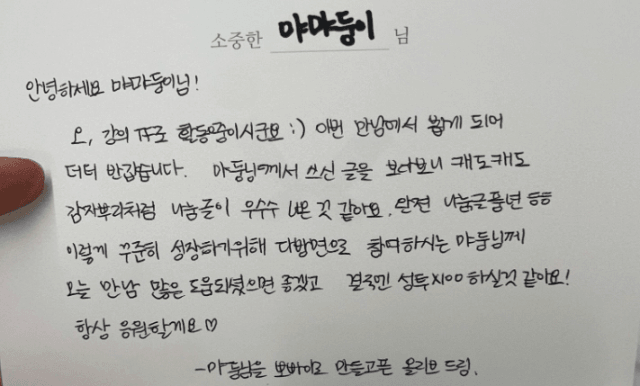 소중한 야야둥이 님
안녕하세요 야야둥이님!
오, 강의 TF로 활동중이시군요 :) 이번 만남에서 뵙게 되어
더더 반갑습니다. 야둥님께서 쓰신 글을 보다보니 캐도캐도
감자뿌리처럼 나눔글이 우수수 나온 것 같아요. 완전 나눔글풍년 ㅎㅎ
이렇게 꾸준히 성장하기위해 다방면으로 참여하시는 야둥님께
오늘 만남 많은 도움되셨으면 좋겠고 결국엔 성투 하실것 같아요!
항상 응원할게요♡
-야둥님을 만들고픈 올리브 드림.